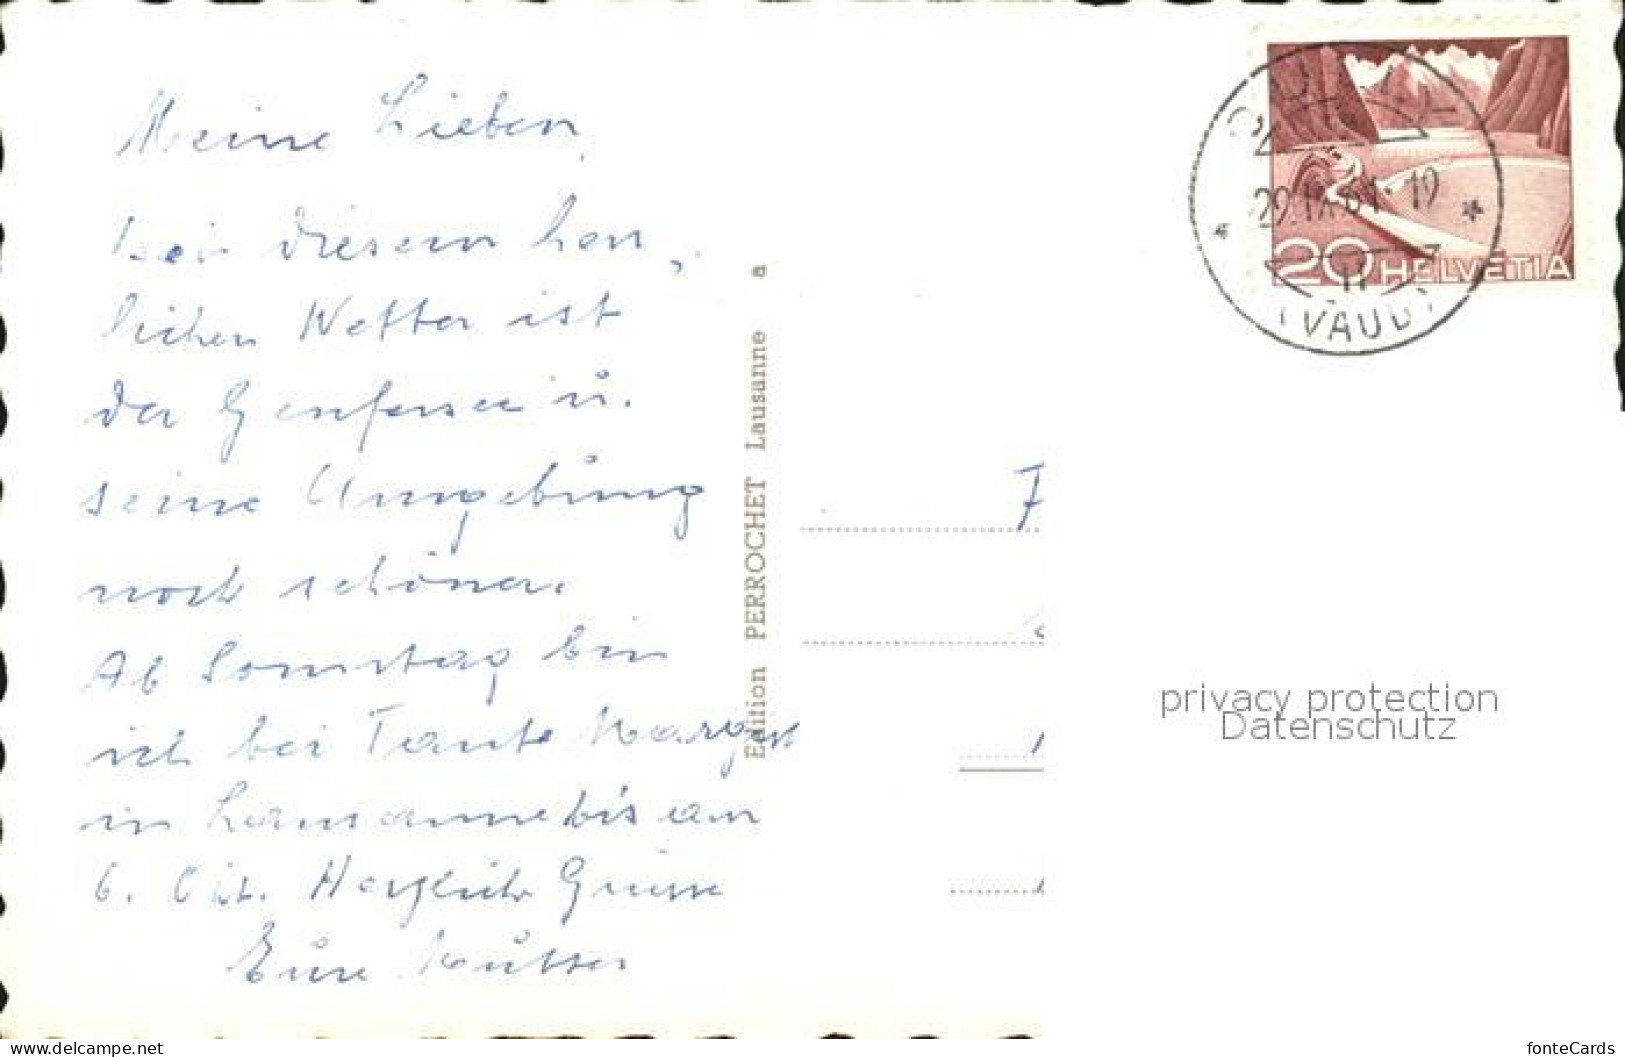 Meine Lieben,
bei diesem herr-
lichen Wetter ist
der Genfersee u.
seine Umgebung
noch schöner.
Ab Sonntag bin
ich bei Tante Margrit
in Lausanne bis am
6. Okt. Herzliche Grüsse
Eure Mutter
Edition PERROCHET Lausanne a
PULLY
29.IX.61-19
(VAUD)
20 HELVETIA
privacy protection
Datenschutz
www.delcampe.net
fonteCards